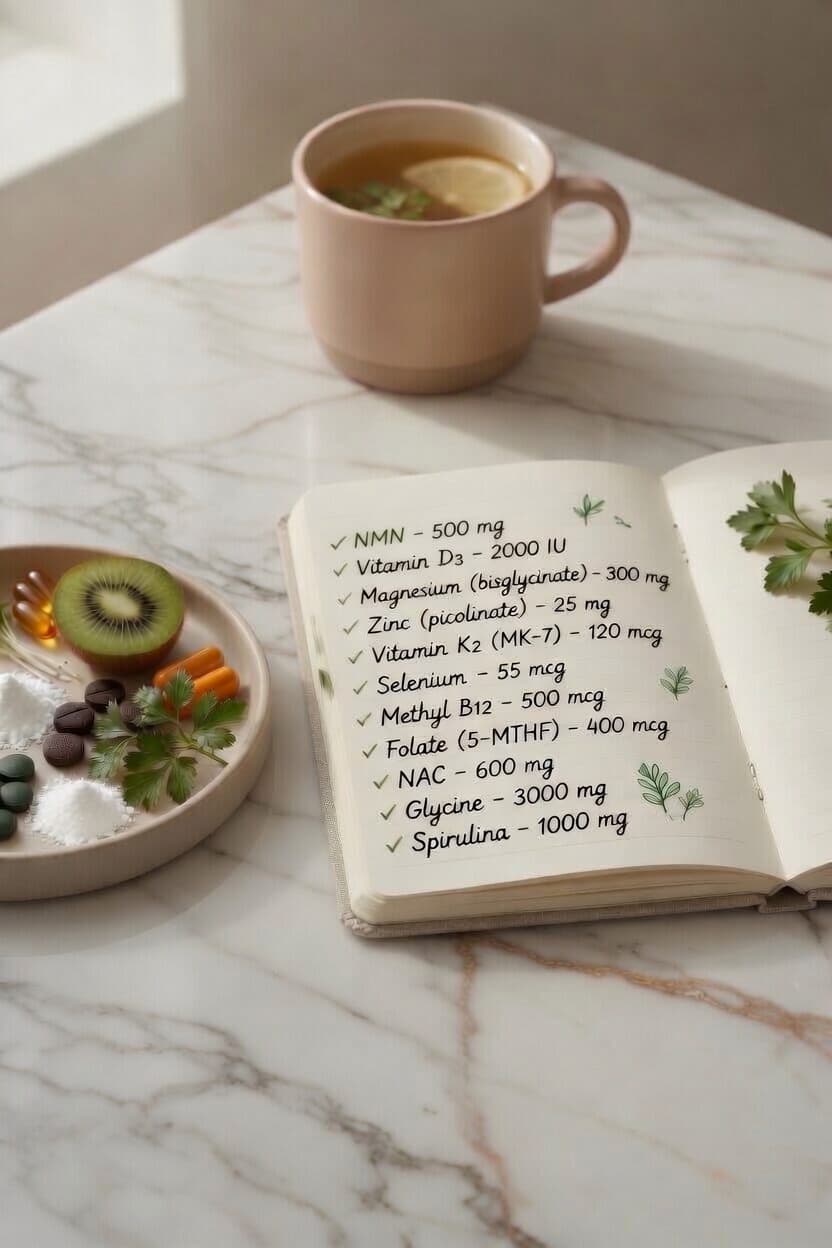 ✓ NMN – 500 mg
✓ Vitamin D₃ – 2000 IU
✓ Magnesium (bisglycinate) – 300 mg
✓ Zinc (picolinate) – 25 mg
✓ Vitamin K₂ (MK-7) – 120 mcg
✓ Selenium – 55 mcg
✓ Methyl B12 – 500 mcg
✓ Folate (5-MTHF) – 400 mcg
✓ NAC – 600 mg
✓ Glycine – 3000 mg
✓ Spirulina – 1000 mg